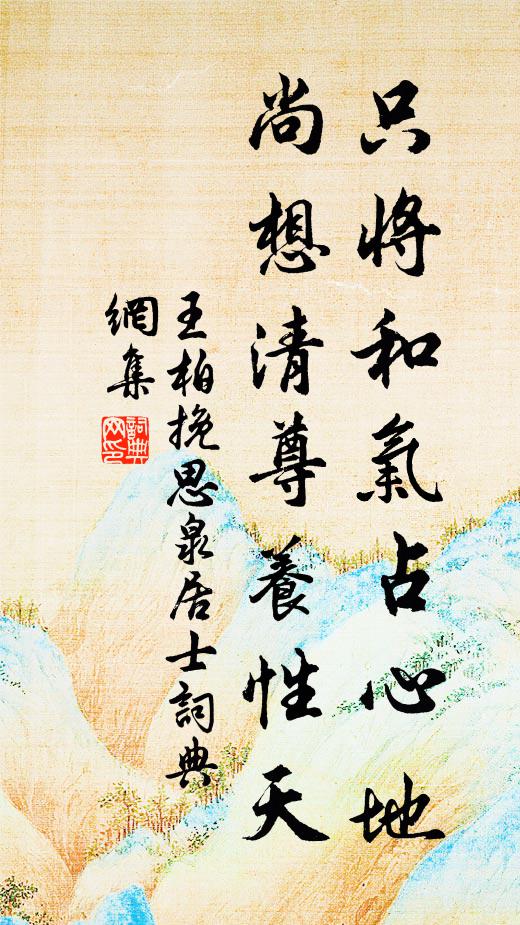 只將和氣占心地
尚想清尊養性天
王柏挽思泉居士詞典
網集
詞典
网印